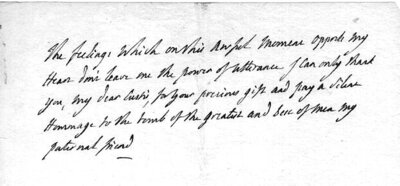 The feelings which on this awful moment oppress my
Heart don't leave me the power of utterance I can only thank
you, my dear Custis, for your precious gift and pay a silent
Hommage to the tomb of the greatest and best of men my
paternal friend